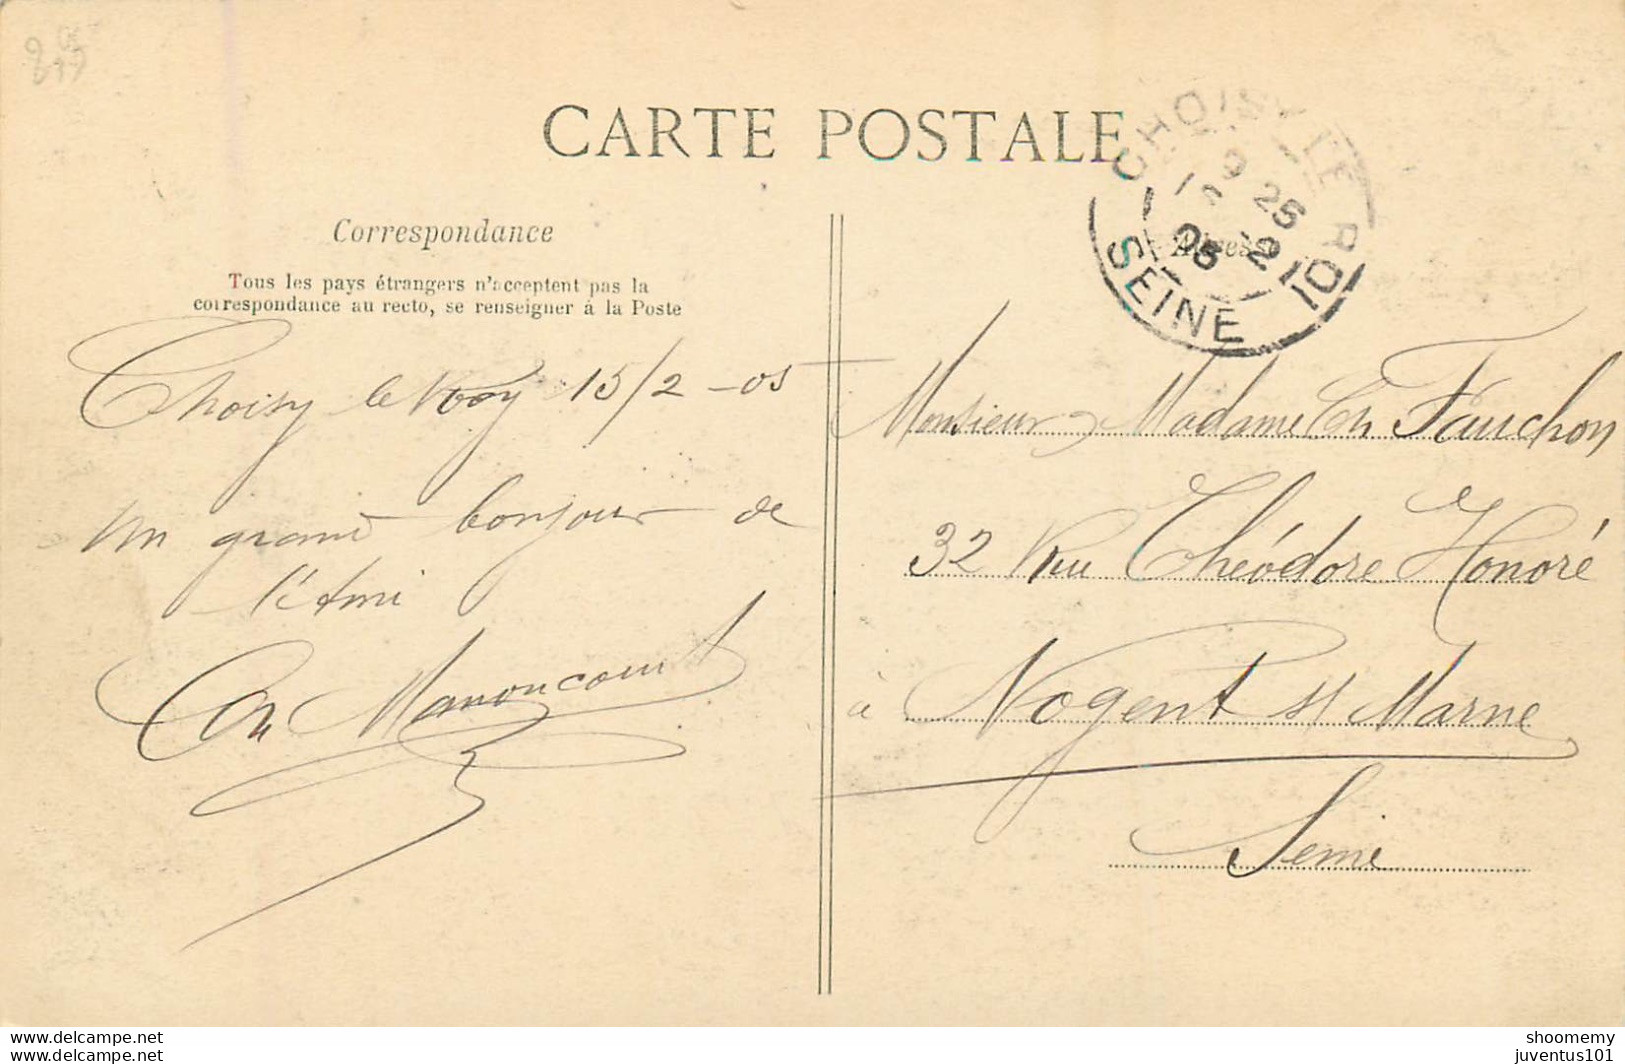 CARTE POSTALE
Correspondance
Tous les pays étrangers n'acceptent pas la
correspondance au recto, se renseigner à la Poste
Choisy le Roy 15/2 - 05
Un grand bonjour de
l'Ami
Ch Manoncourt
CHOISY LE ROI
9 25
15 2
05
SEINE
Adresse
Monsieur Madame Ch Fauchon
32 Rue Théodore Honoré
à Nogent s/ Marne
Seine
www.delcampe.net
shoomemy
juventus101